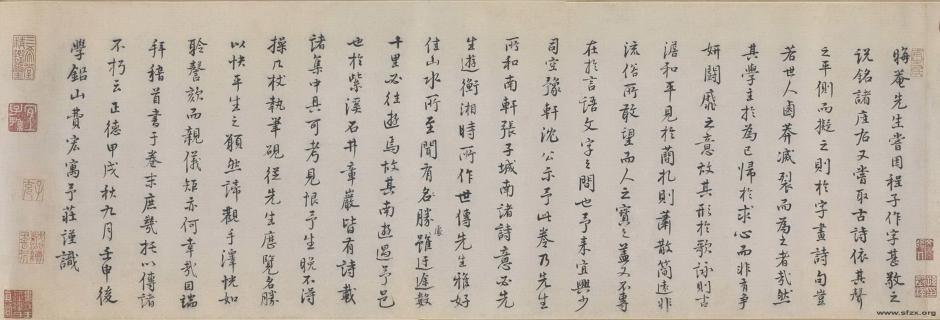 晦菴先生嘗因程子作字甚敬之
說銘諸座右又嘗取古詩依其聲
之平側而擬之則於字畫詩句豈
若世人鹵莽滅裂而為之者哉然
其學主於為己歸於求心而非有爭
妍鬪靡之意故其形於歌詠則古
澹和平見於蕑札則蕭散簡遠非
流俗所敢望而人之寳之葢又不專
在於言語文字之間也予来宜興少
司空豫軒沈公示予此卷乃先生
所和南軒張子城南諸詩意必先
生遊衡湘時所作世傳先生雅好
佳山水所至聞有名勝雖迂途數
十里必往遊焉故其南遊過予邑
也於紫溪石井章巖皆有詩載
諸集中具可考見恨予生晚不淂
操几杖執筆硯從先生歷覧名勝
以快平生之願然諦觀手澤恍如
聆謦欬而親儀矩亦何幸哉因端
拜稽首書于卷末庶幾托以傳諸
不朽云正德甲戌秋九月壬申後
學鉛山費宏寓予莊謹識
www.sfzx.org